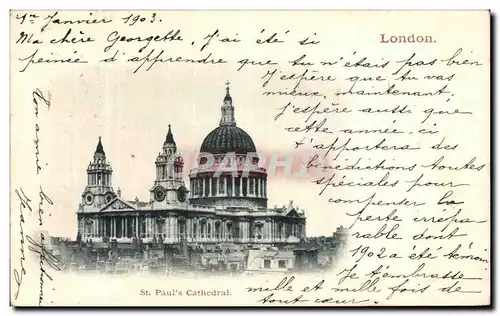 1er Janvier 1903.
London.
Ma chère Georgette, J'ai été si
peinée d'apprendre que tu n'étais pas bien
J'espère que tu vas
mieux, maintenant.
J'espère aussi que
cette année-ci
t'apportera des
bénédictions toutes
spéciales pour
compenser la
perte irrépa-
rable dont
1902 a été témoin.
Je t'embrasse
mille et mille fois de
tout cœur.
Ton amie bien
St. Paul's Cathedral.